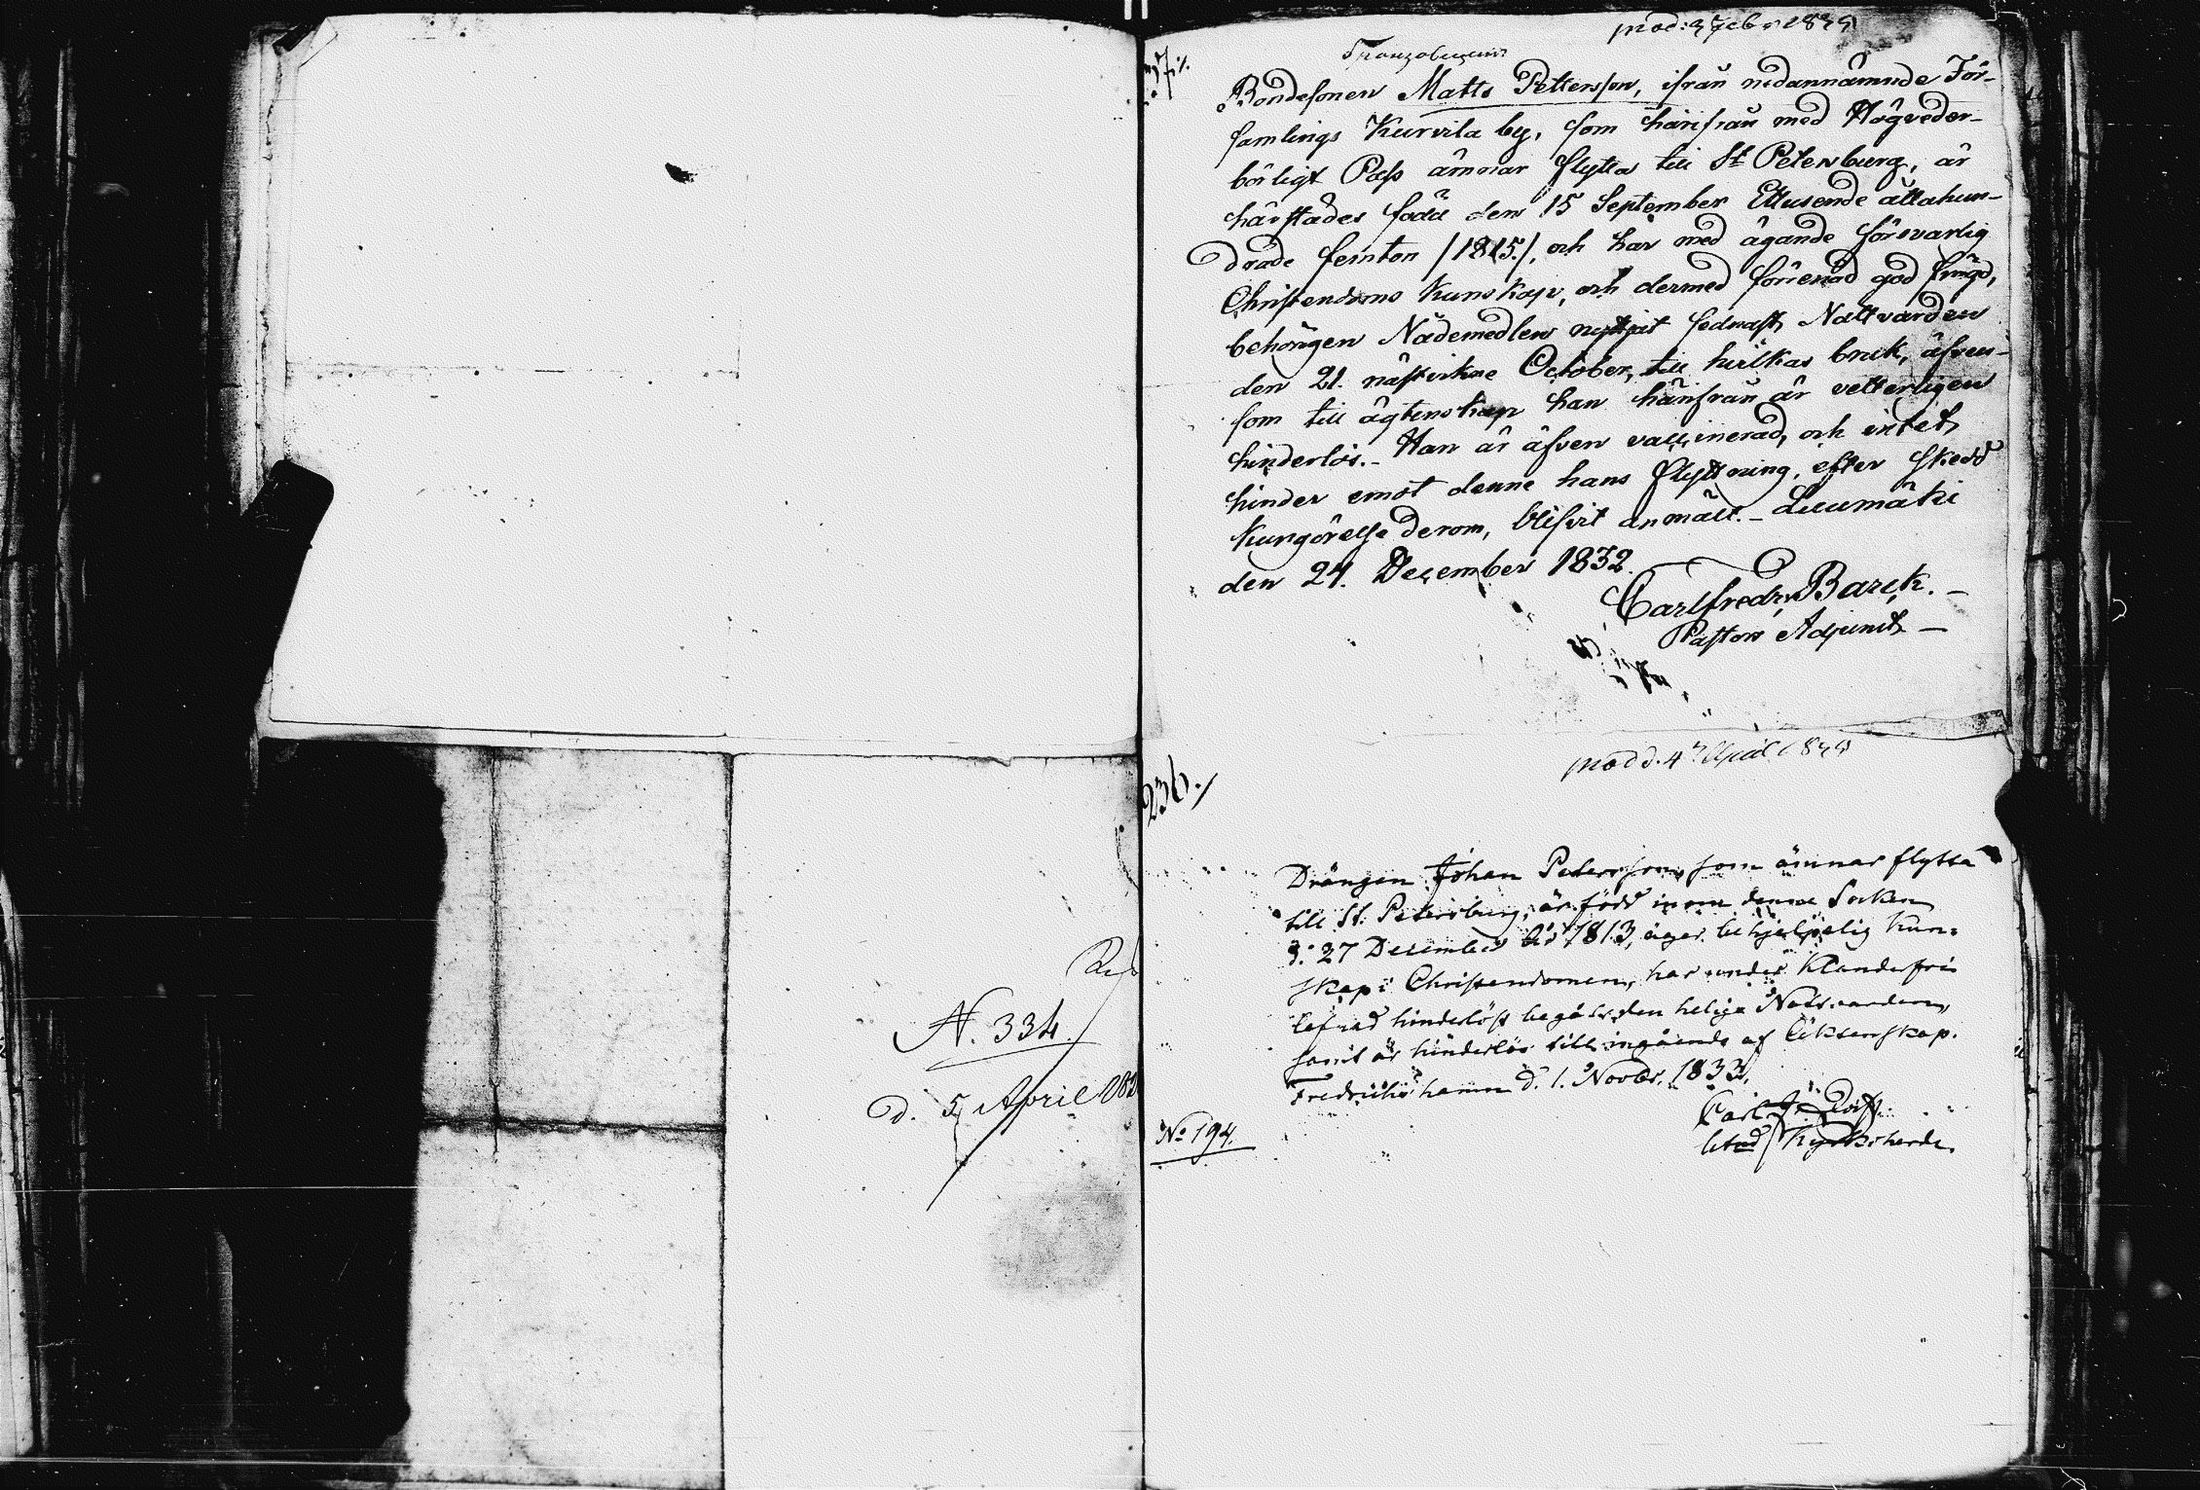 N. 334.
d. 5 April 183
mod: 3 Febr 1834
Bondesonen Matts Pettersson, ifrån nedannämnde För-
samlings Kurvila by, som härifrån med Högveder-
börligt Pass ämnar flytta till St Petersburg, är
härstädes född den 15 September Ettusende åttahun-
drade femton /1815./, och har med ägande försvarlig
Christendoms Kunskap, och dermed förenad god frägd,
behörigen Nådemedlen nyttjat sednast Nattvarden
den 21. nästvikne October, till hvilkas bruk, äfven-
som till ägtenskap han härifrån är vetterligen
hinderlös. - Han är äfven vaccinerad, och intet
hinder emot denne hans flyttning, efter skedd
Kungörelse derom, blifvit anmält. - Luumäki
den 24. December 1832.
Carl Fredr. Barck. -
Pastors Adjunct -
mod d. 4 April 1834
236./
Drängen Johan Petersson, som ämnar flytta
till St. Petersburg, är född inom denna Socken
d. 27 December år 1813, äger behjelpelig Kun-
skap i Christendomen, har under klanderfri
lefnad hinderlöst begått den heliga Nattvarden,
samt är hinderlös till ingående af Äktenskap.
Fredrikshamn d. 1. Novbr. 1833.
Carl
Kyrkoherde.
No 194.